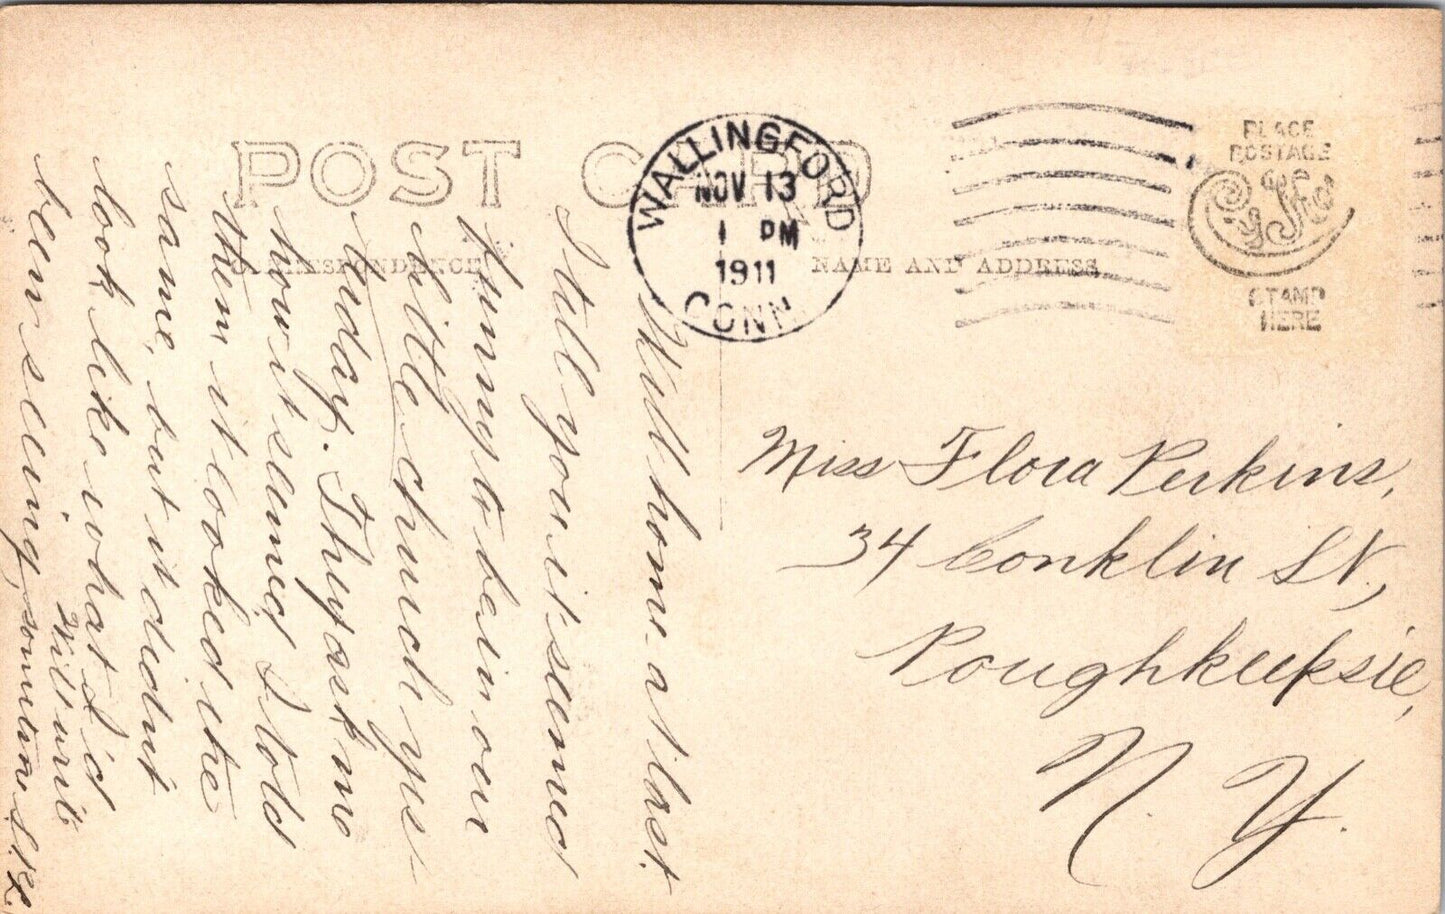 POST CARD
CORRESPONDENCE
NAME AND ADDRESS
WALLINGFORD
NOV 13
1 PM
1911
CONN.
PLACE
POSTAGE
STAMP
HERE
Miss Flora Perkins,
34 Conklin St.,
Poughkeepsie,
N. Y.
Well home at last.
I tell you it seemed
funny to be in our
little church yes-
terday. They ask me
how it seemed I told
them it looked the
same, but it didn't
look like what I'd
been seeing,
Will write
sometime